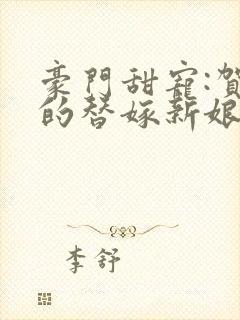 豪門甜寵:賀
的替嫁新娘
李舒